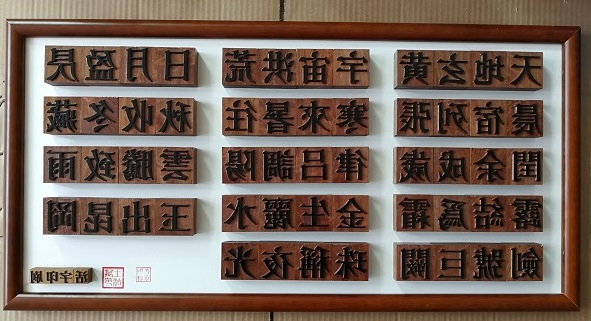 天地玄黄
宇宙洪荒
日月盈昃
晨宿列張
寒來暑往
秋收冬藏
閏余成歲
律吕調陽
雲騰致雨
露結爲霜
金生麗水
玉出昆岡
劍號巨闕
珠稱夜光
活字印刷